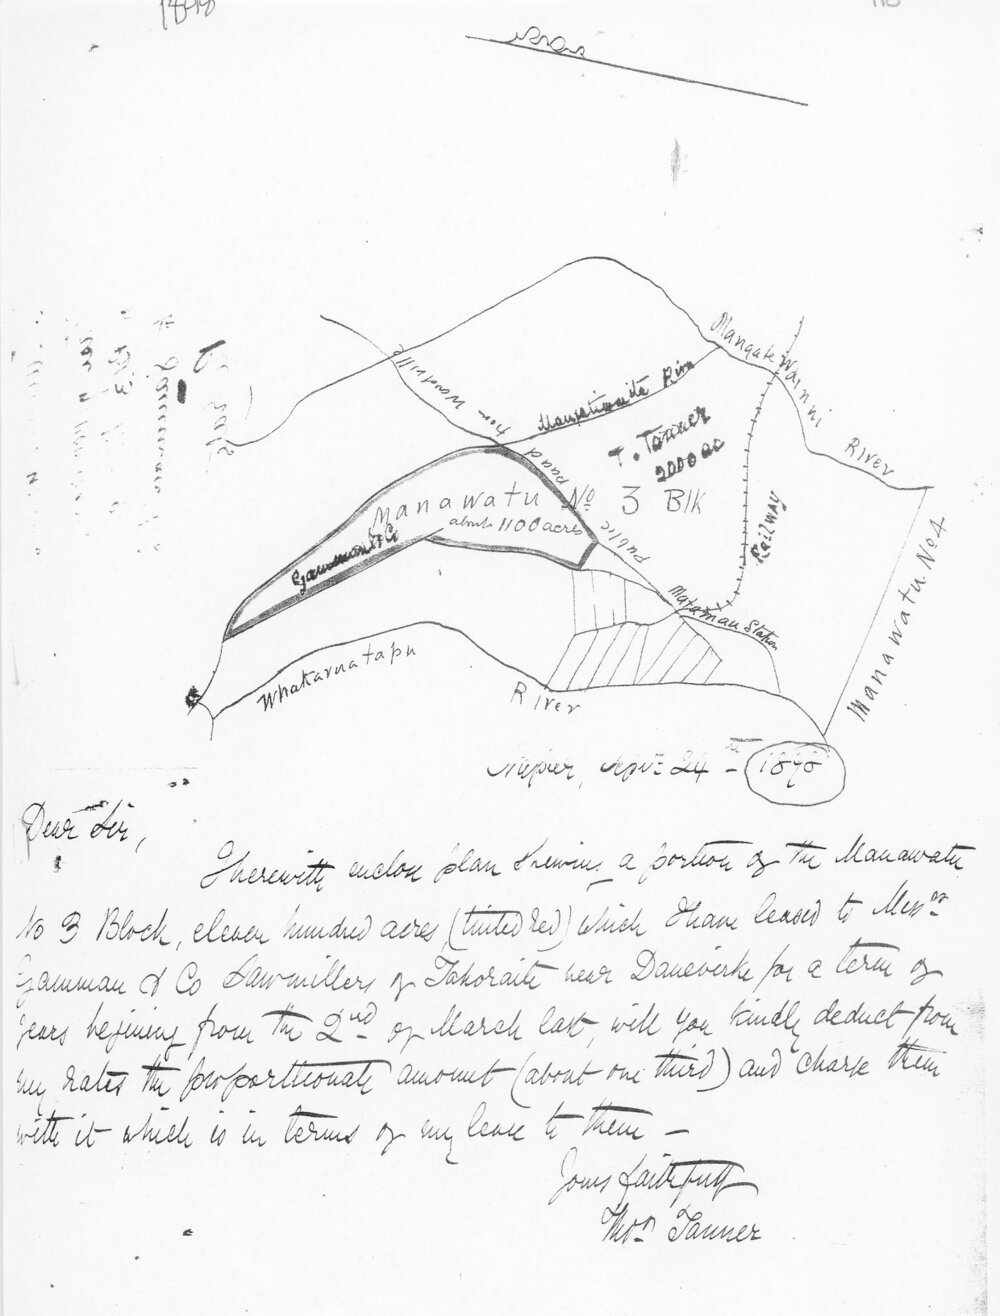 1898
Mangate Wainui
River
Norsewood
from
Mangatiwaiite River
T. Tanner
2000 ac
Public Road
Manawatu No 3 Blk
about 1100 acres
Gamman & Co
Railway
Matamau Station
Manawatu No 4
Whakaruatapu
River
Napier, Apr: 24th 1898
Dear Sir,
I herewith enclose plan shewing a portion of the Manawatu
No 3 Block, eleven hundred acres (tinted red) which I have leased to Messrs
Gamman & Co Sawmillers of Tahoraite near Danevirke for a term of
years begining from the 2nd of March last, will you kindly deduct from
my rates the proportionate amount (about one third) and charge them
with it which is in terms of my lease to them –
Yours faithfully
Thos Tanner